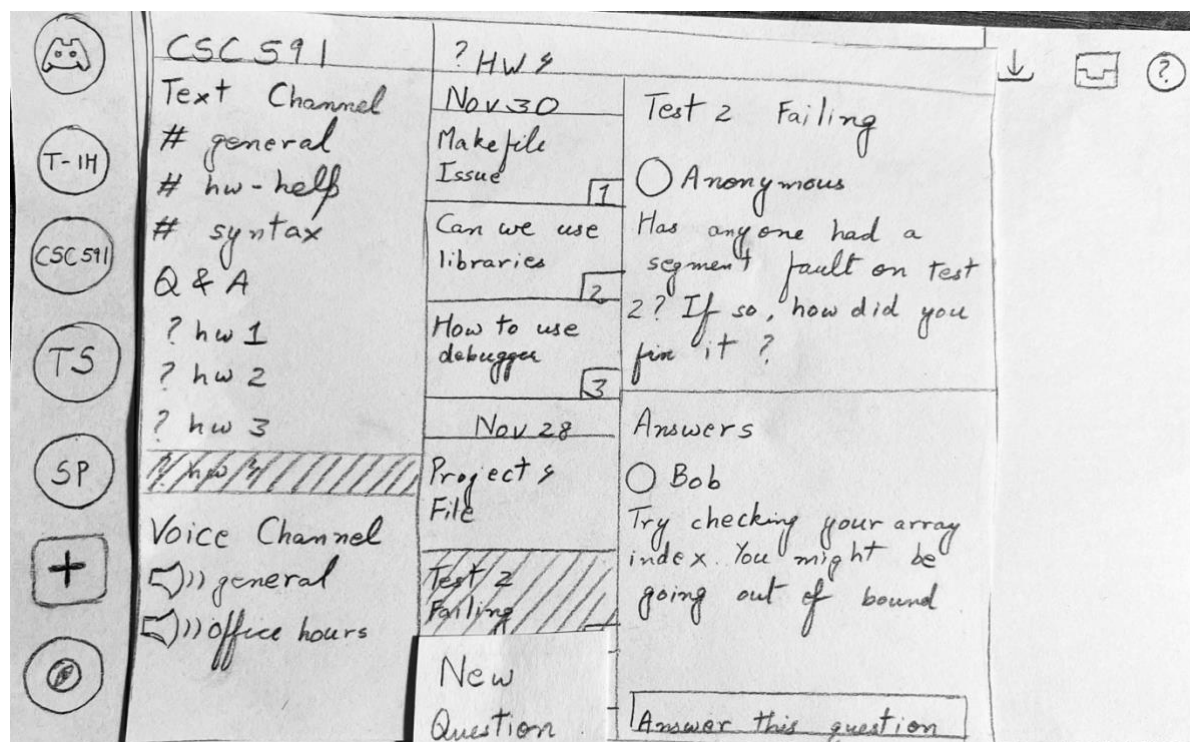 T-1H
CSC591
TS
SP
+
CSC 591
Text Channel
# general
# hw-help
# syntax
Q & A
? hw 1
? hw 2
? hw 3
? hw 4
Voice Channel
general
office hours
? HW 4
Nov 30
Makefile
Issue
1
Can we use
libraries
2
How to use
debugger
3
Nov 28
Project 4
File
Test 2
Failing
New
Question
Test 2 Failing
Anonymous
Has anyone had a
segment fault on test
2? If so, how did you
fix it?
Answers
Bob
Try checking your array
index. You might be
going out of bound
Answer this question
?